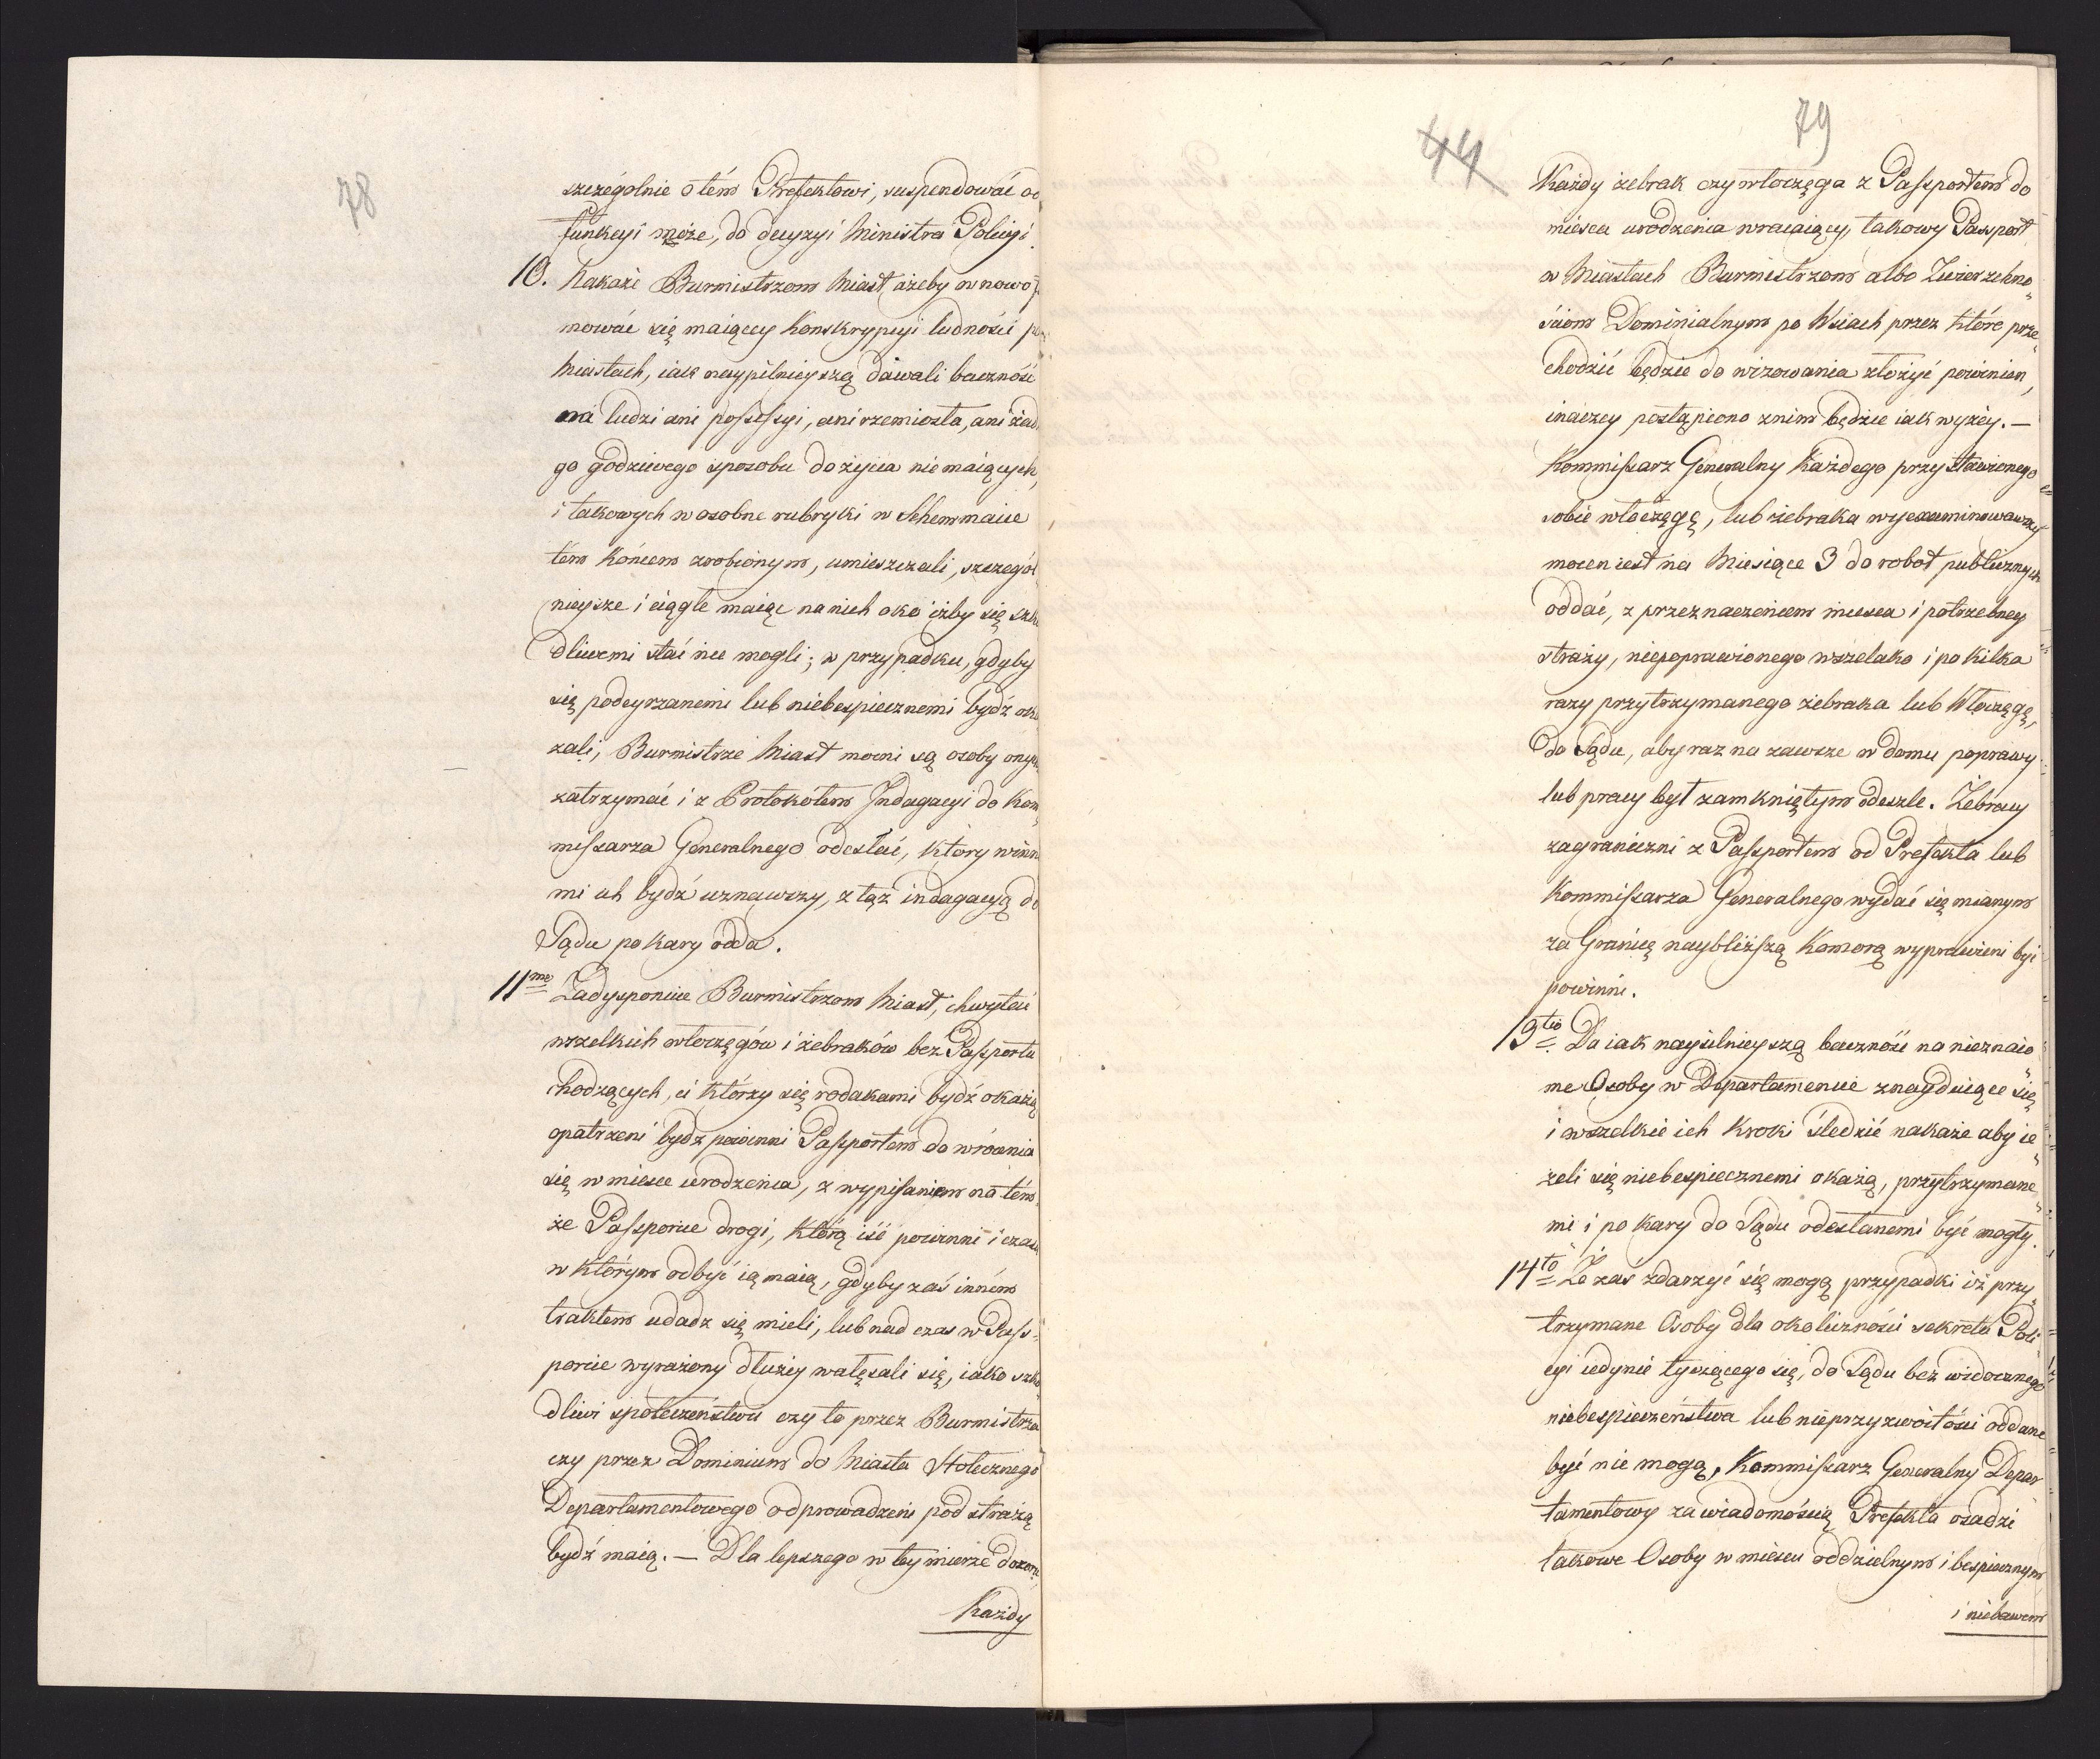 78
szczególnie o tém Prefektowi, suspendować od
funkcyi może, do decyzyi Ministra Policyi.
10. Nakaże Burmistrzom Miast ażeby w nowo
mować się maiącey Konskrypcyi ludności po
Miastach, iak naypilnieyszą dawali baczność
na ludzi ani possessyi, ani rzemiosła, ani żad
go godziwego sposobu do życia nie maiących,
i takowych w osobne rubryki w Schemmaice
tém końcem zrobionym, umieszczali, szczegól
nieysze i ciągłe maiąc na nich oko iżby się szko
dliwemi stać nie mogli; w przypadku, gdyby
się podeyrzanemi lub niebespiecznemi bydź oka
zali, Burmistrze Miast mocni są osoby onych
zatrzymać i z Protokółem Indagacyi do Kom
missarza Generalnego odesłać, który winne
mi ich bydź uznawszy, z tąż indagacyą do
Sądu po kary odda.
11me Zadysponuie Burmistrzom Miast, chwytać
wszelkich włoczęgów i żebraków bez Passportu
chodzących, ci którzy się rodakami bydź okażą
opatrzeni bydz powinni Passportem do wrócenia
się w mieysce urodzenia, z wypisaniem na tém
że Passporcie drogi, którą iść powinni i czasu
w którym odbyć ią maią, gdyby zaś inném
traktem udadz się mieli, lub nad czas w Pass-
porcie wyrażony dłużey wałęsali się, iako szko
dliwi społeczeństwu czy to przez Burmistrza
czy przez Dominium do Miasta Stołecznego
Departamentowego odprowadzeni pod strażą
bydź maią. — Dla lepszego w tey mierze dozoru
Każdy
44
79
Każdy żebrak czy włoczęga z Passportem do
miesca urodzenia wracaiący, takowy Passport
w Miastach Burmistrzom albo Zwierzchno
ściom Dominialnym po Wsiach przez które prze
chodzić będzie do wizowania złożyć powinien,
inaczey postąpiono znim będzie iak wyżey. —
Kommissarz Generalny Każdego przystawionego
sobie włoczęgę, lub żebraka wyexaminowawszy
mocen iest na Miesiące 3 do robot publicznych
oddać, z przeznaczeniem miesca i potrzebney
straży, niepoprawionego wszelako i po kilka
razy przytrzymanego żebraka lub Włoczęgę,
do Sądu, aby raz na zawsze w domu poprawy
lub pracy był zamkniętym odeszle. Żebracy
zagraniczni z Passportem od Prefekta lub
Kommissarza Generalnego wydać się mianym
za Granicę naybliższą Komorą wyprawieni być
powinni.
13tio Da iak naysilnieyszą baczność na nieznaio
me Osoby w Departamencie znayduiące się
i wszelkie ich kroki śledzić nakaże aby ie
żeli się niebespiecznemi okażą, przytrzymane
mi i po kary do Sądu odesłanemi być mogły.
14to Że zas zdarzyć się mogą przypadki iż przy
trzymane Osoby dla okoliczności sekretu Poli
cyi iedynie tyczącego się, do Sądu bez widocznego
niebespieczeństwa lub nieprzyzwoitości oddane
być nie mogą, Kommissarz Generalny Depar
tamentowy za wiadomością Prefekta osadzi
takowe Osoby w miescu oddzielnym i bespiecznym
i niebawem